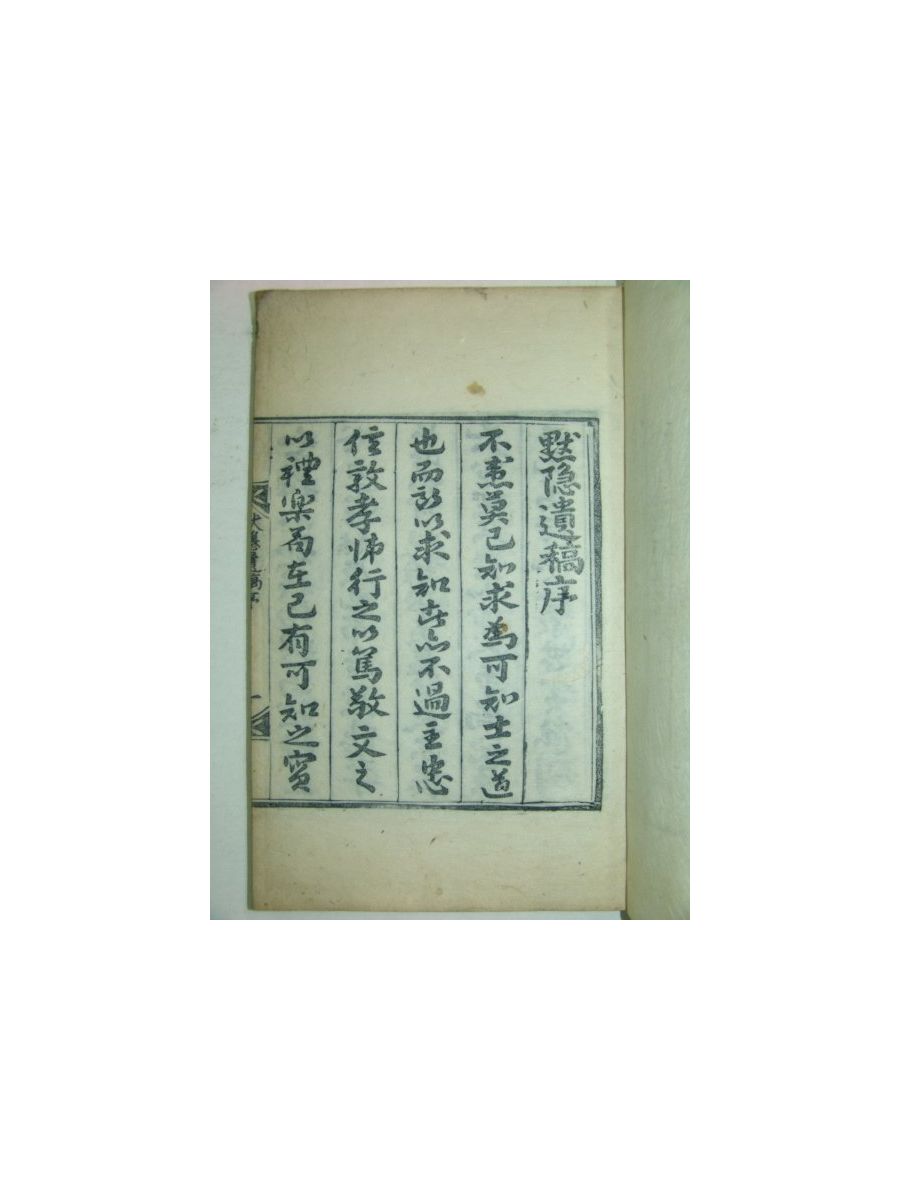 默隐遺稿序
不患莫己知求為可知士之道
也而所以求知者亦不過主忠
信敦孝悌行之以篤敬文之
以禮樂而在己有可知之實